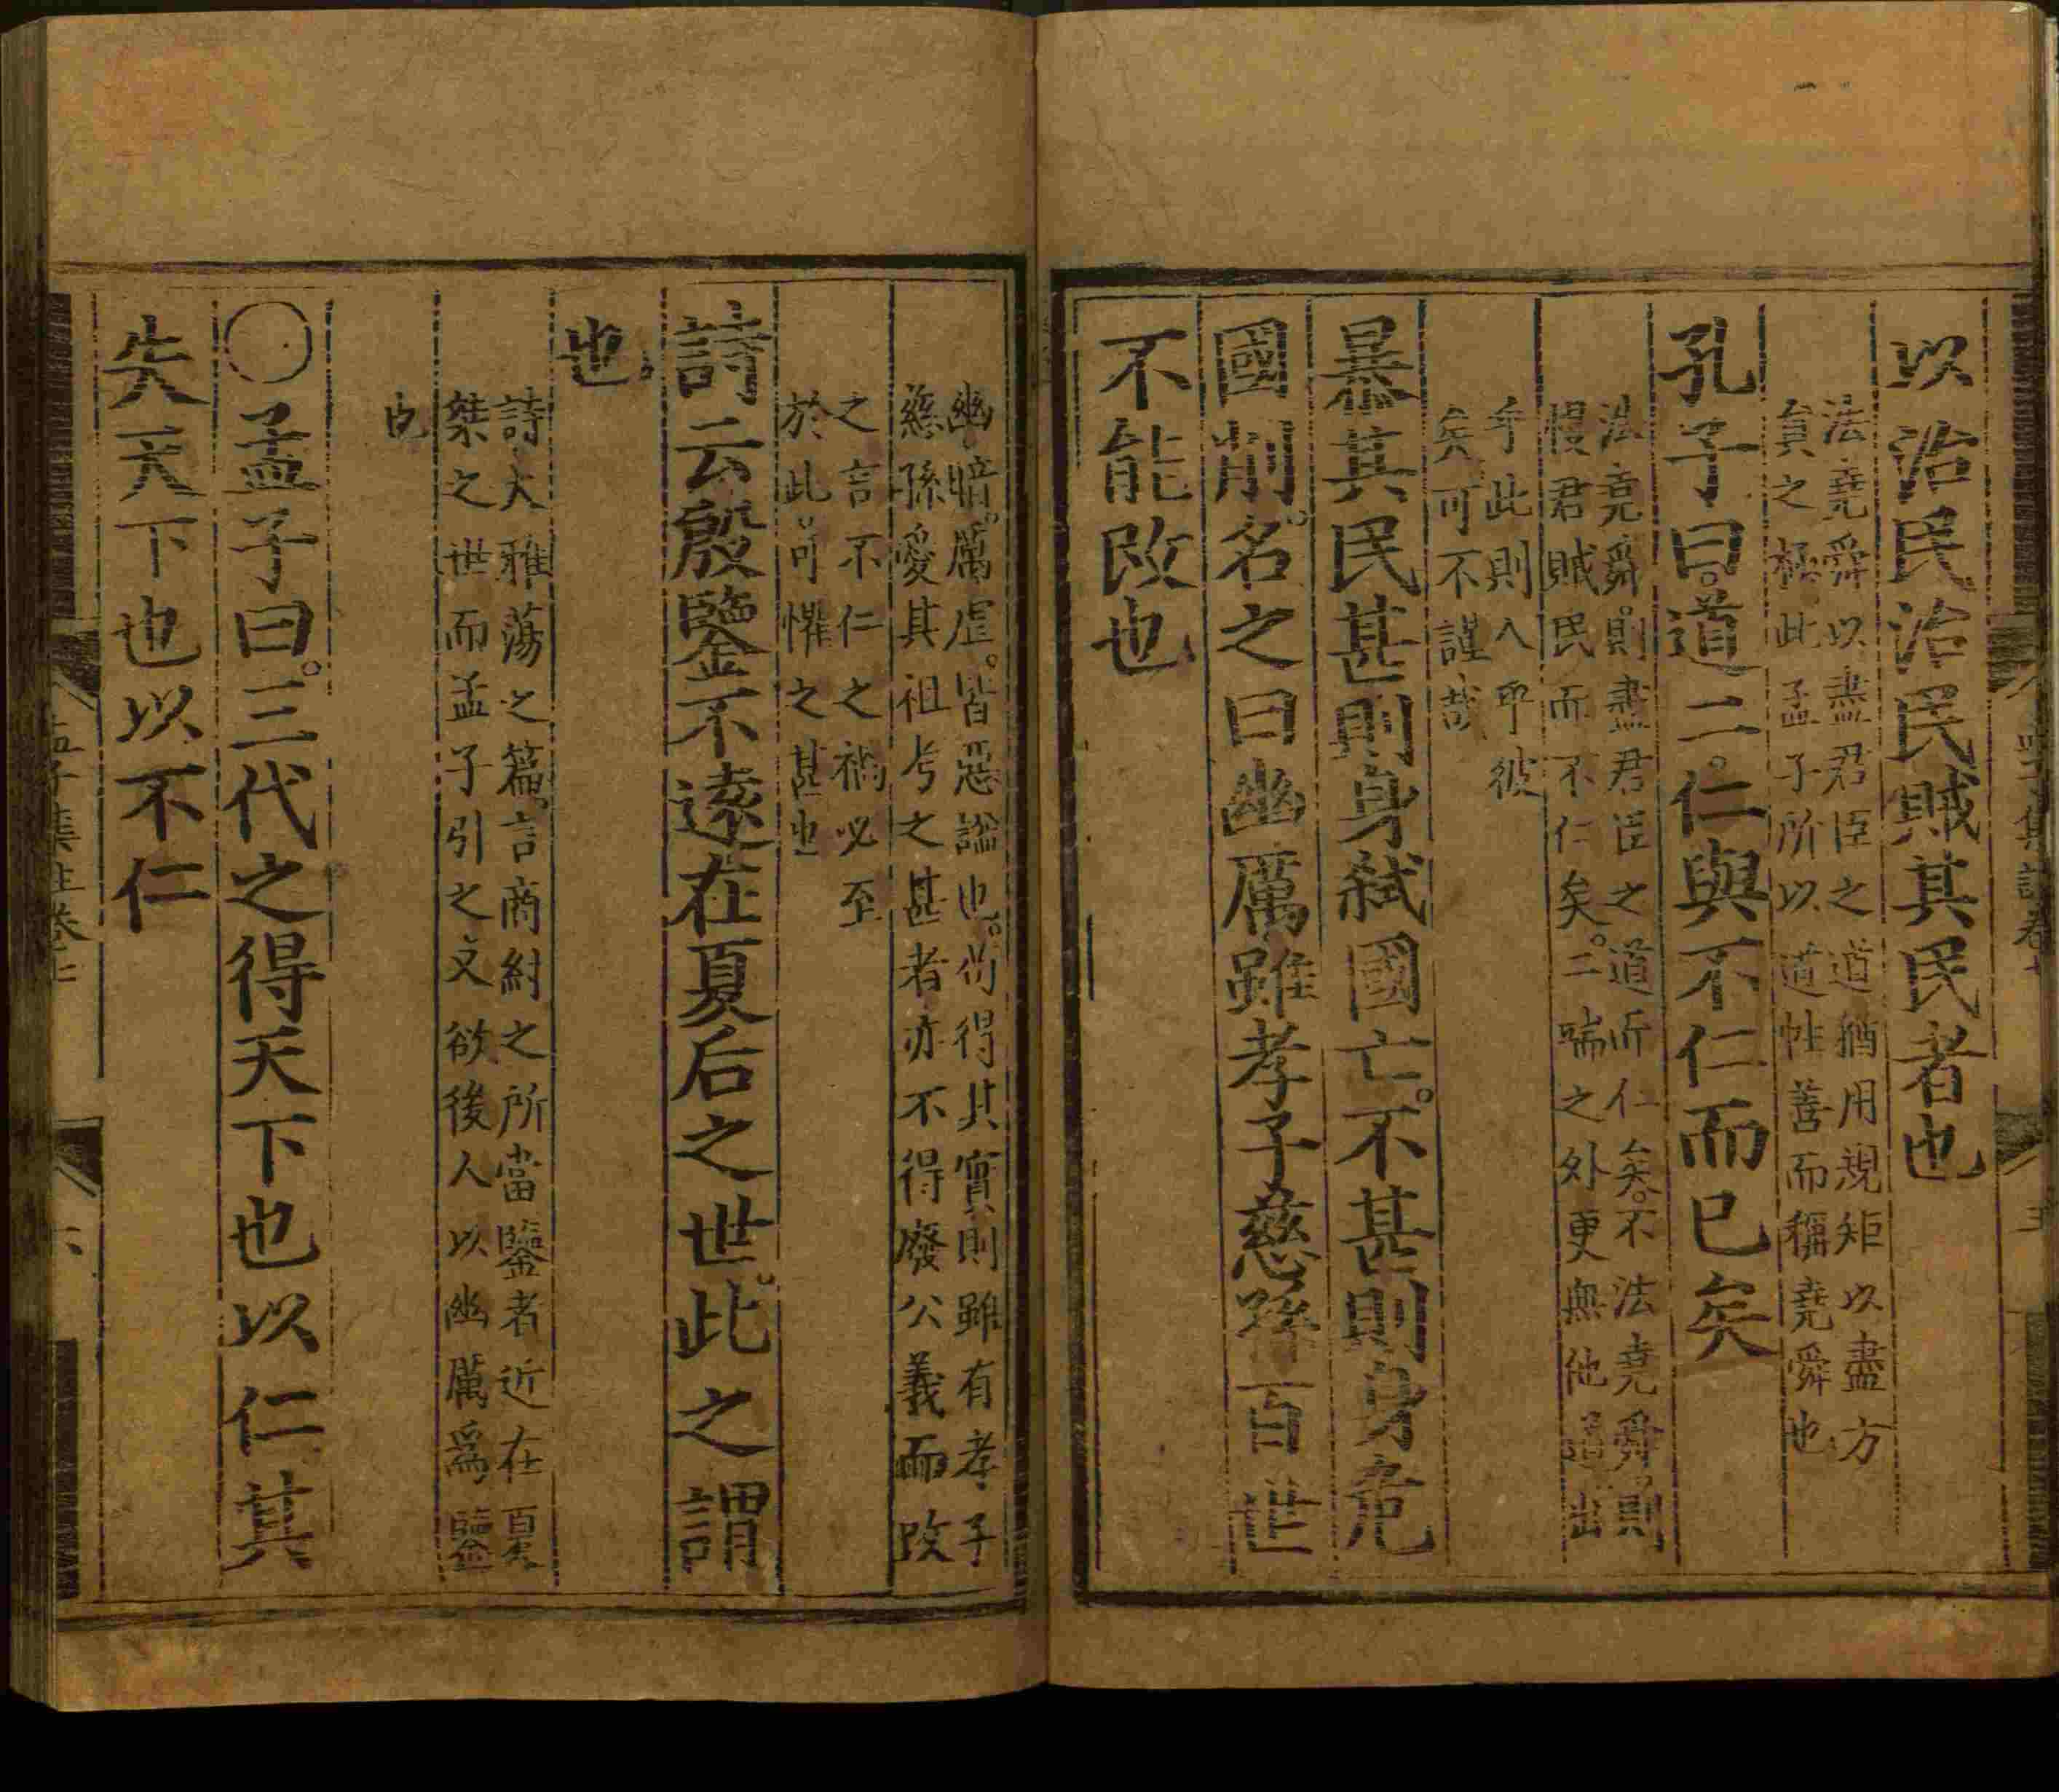 以治民治民賊其民者也
法堯舜以盡君臣之道猶用規矩以盡方
員之極此孟子所以道性善而稱堯舜也
孔子曰。道二。仁與不仁而已矣
法堯舜。則盡君臣之道而仁矣。不法堯舜。則
慢君賊民而不仁矣。二端之外更無他道出
乎此則入乎彼
矣可不謹哉
暴其民甚則身弑國亡。不甚則身危
國削。名之曰幽厲雖孝子慈孫百世
不能改也
幽暗。厲虐。皆惡謚也。尚得其實則雖有孝子
慈孫愛其祖考之甚者亦不得廢公義而改
之言不仁之禍必至
於此可懼之甚也
詩云殷鑒不遠在夏后之世。此之謂
也
詩大雅蕩之篇。言商紂之所當鑒者近在夏
桀之世而孟子引之文欲後人以幽厲爲鑒
也
○孟子曰。三代之得天下也以仁其
失天下也以不仁
孟子集註卷七
六